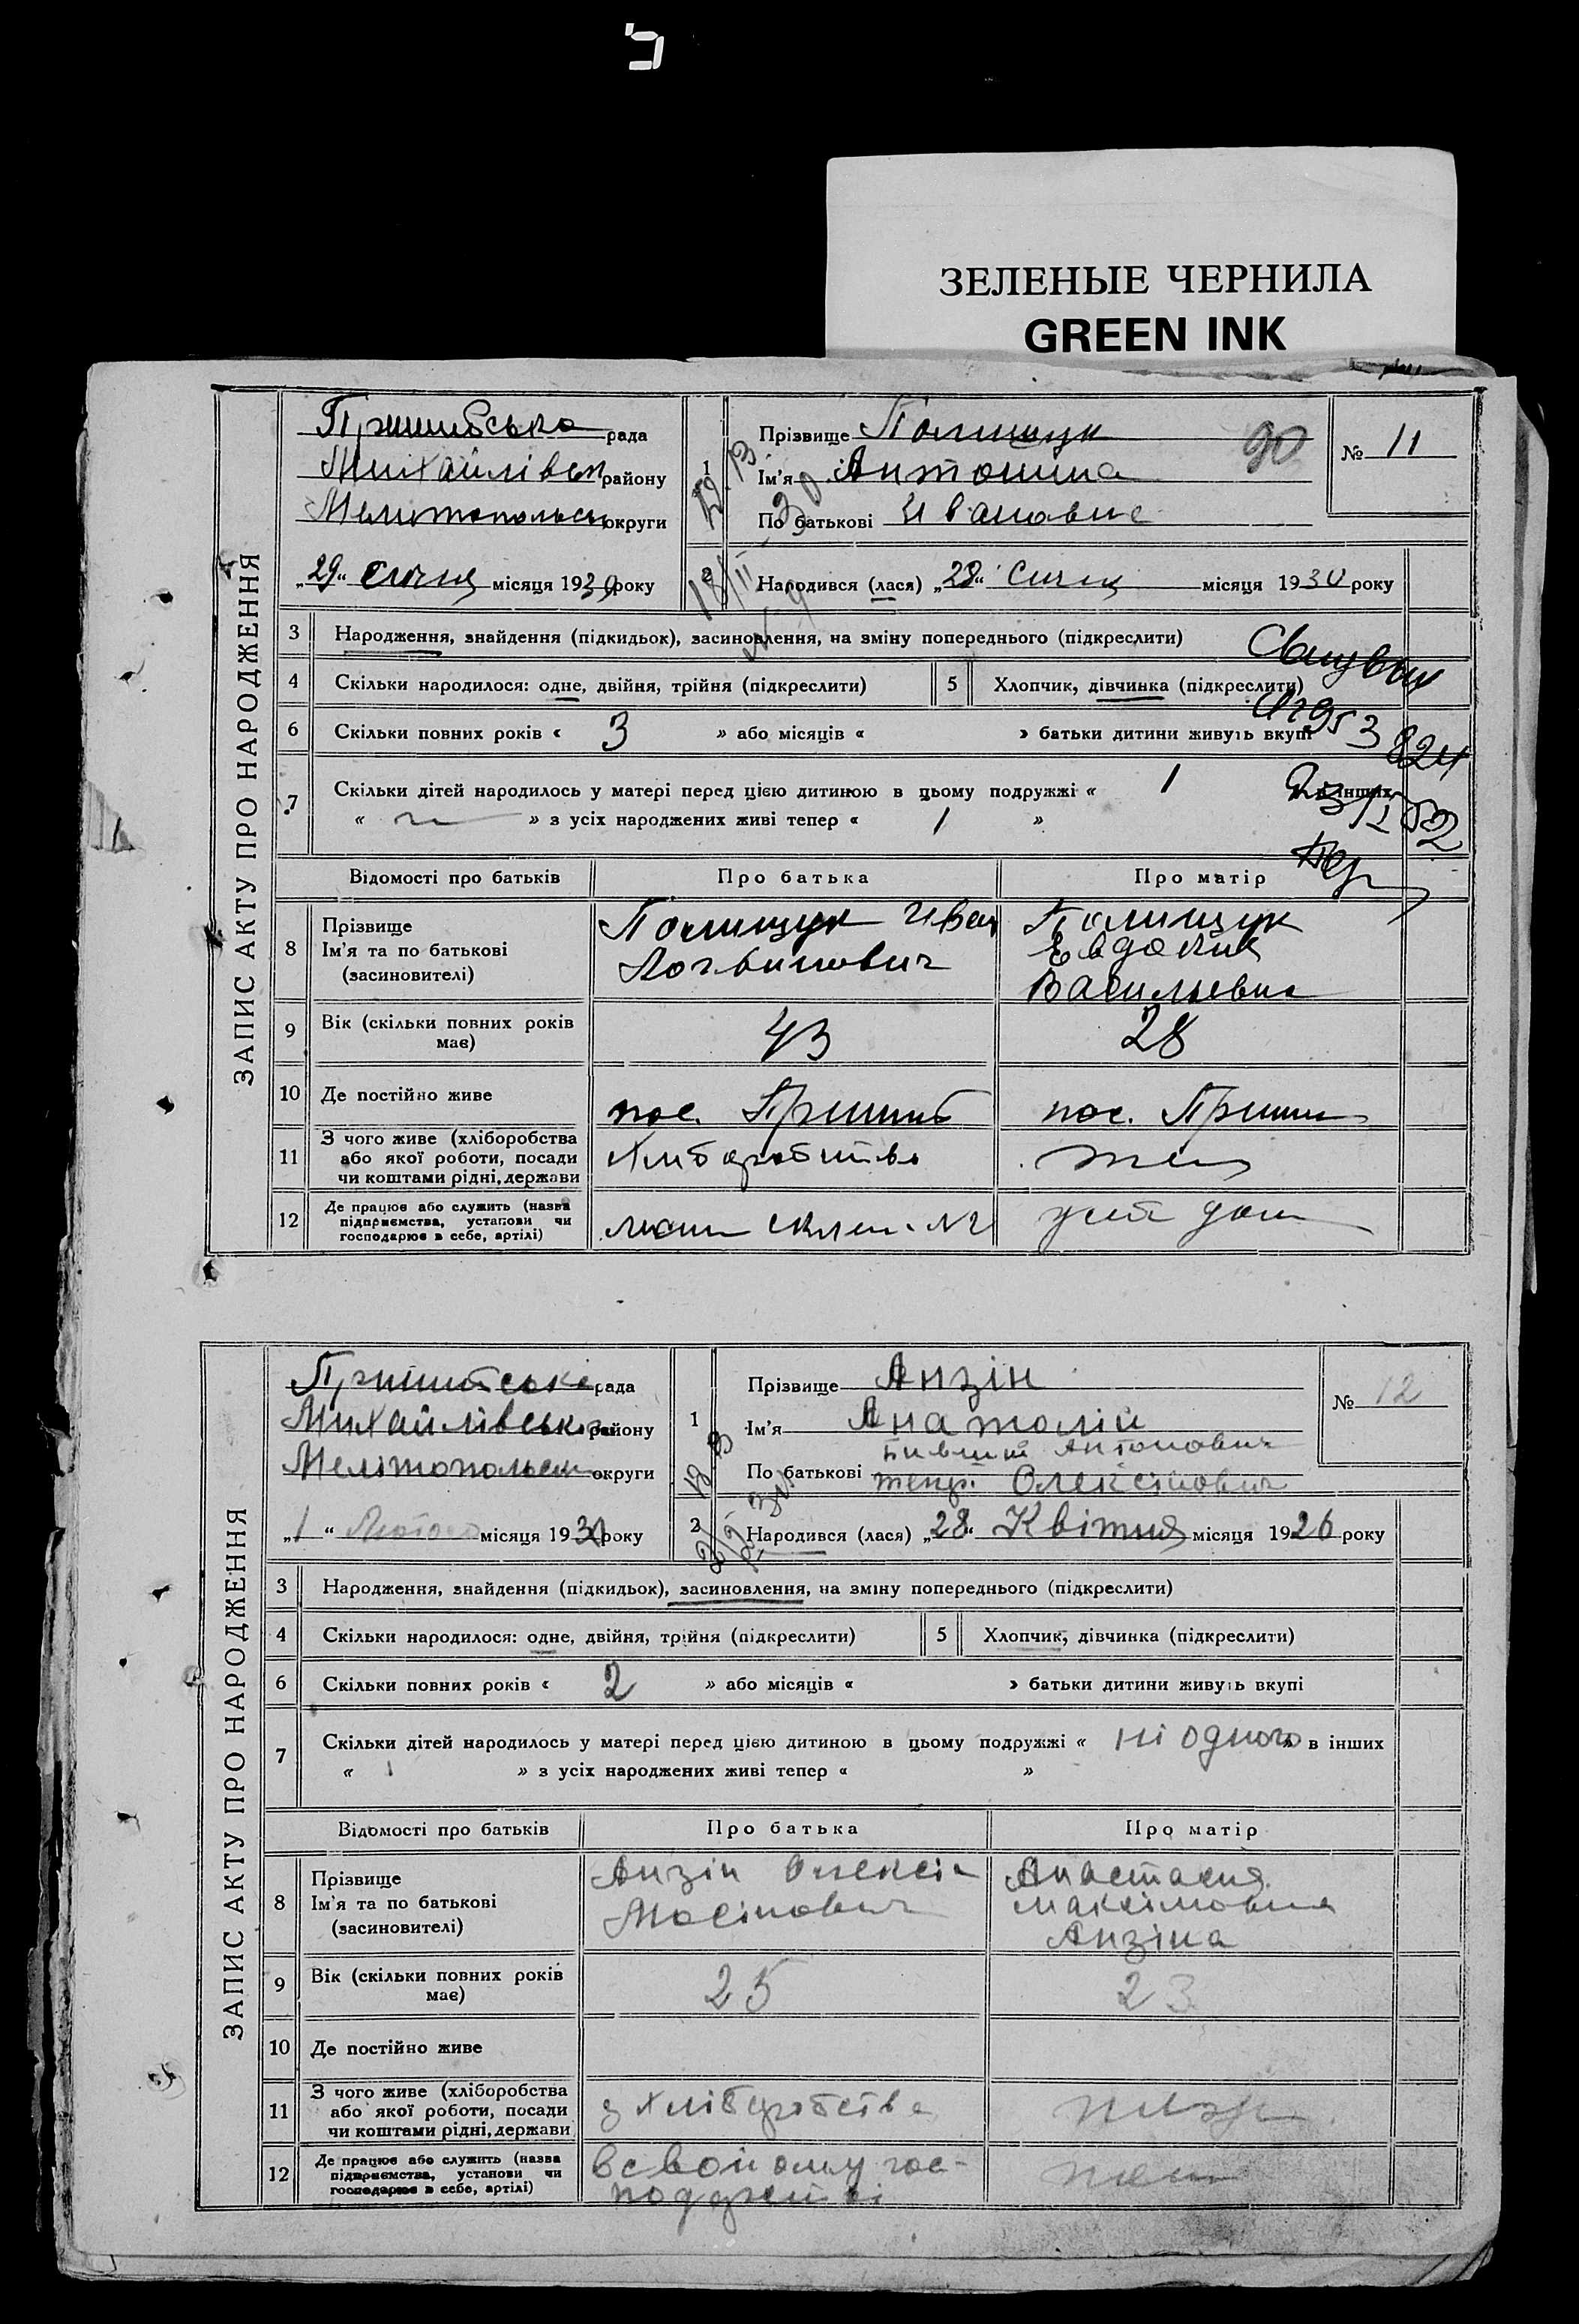 ЗЕЛЕНЫЕ ЧЕРНИЛА
GREEN INK
ЗАПИС АКТУ ПРО НАРОДЖЕННЯ
рада
Михайлівськ району
Мелитопольськ округи
„29“ січня місяця 1930 року
1
Прізвище Полищук
90
Ім'я Антонина
По батькові Ивановна
№ 11
2
Народився (лася) „28“ січня місяця 1930 року
3 Народження, знайдення (підкидьок), засиновлення, на зміну попереднього (підкреслити)
4 Скільки народилося: одне, двійня, трійня (підкреслити) 5 Хлопчик, дівчинка (підкреслити)
6 Скільки повних років « 3 » або місяців « » батьки дитини живуть вкупі
7 Скільки дітей народилось у матері перед цією дитиною в цьому подружжі « 1 » в інших
« » з усіх народжених живі тепер « 1 »
Відомості про батьків Про батька Про матір
8 Прізвище
Ім'я та по батькові
(засиновителі)
Полищук Иван
Логвинович
Полищук
Евдокия
Васильевна
9 Вік (скільки повних років має) 43 28
10 Де постійно живе пос. Пришиб пос. Пришиб
11 З чого живе (хліборобства
або якої роботи, посади
чи коштами рідні, держави
12 Де працює або служить (назва
підприємства, установи чи
господарює в себе, артілі)
ЗАПИС АКТУ ПРО НАРОДЖЕННЯ
рада
Михайлівської району
Мелітопольськ округи
„1“ Лютого місяця 1930 року
1
Прізвище Анзін
Ім'я Анатолій
Бивший Антонович
По батькові тепер. Олексійович
№ 12
2
Народився (лася) „28“ Квітня місяця 1926 року
3 Народження, знайдення (підкидьок), засиновлення, на зміну попереднього (підкреслити)
4 Скільки народилося: одне, двійня, трійня (підкреслити) 5 Хлопчик, дівчинка (підкреслити)
6 Скільки повних років « 2 » або місяців « » батьки дитини живуть вкупі
7 Скільки дітей народилось у матері перед цією дитиною в цьому подружжі « ні одного » в інших
« » з усіх народжених живі тепер « »
Відомості про батьків Про батька Про матір
8 Прізвище
Ім'я та по батькові
(засиновителі)
Анзін Олексій
Анастасия
Максімовна
Анзіна
9 Вік (скільки повних років має) 25 23
10 Де постійно живе
11 З чого живе (хліборобства
або якої роботи, посади
чи коштами рідні, держави
з хліборобства
12 Де працює або служить (назва
підприємства, установи чи
господарює в себе, артілі)
в своїому гос-